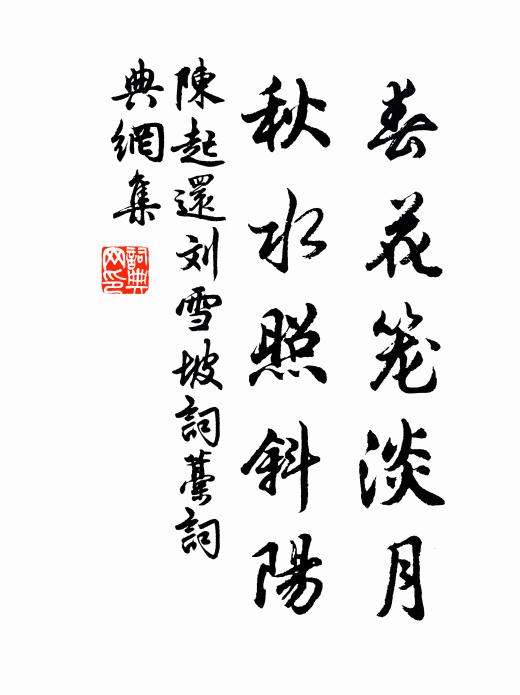 春花笼淡月
秋水照斜陽
陳起還刘雪坡詞藁詞
典網集
詞典网印